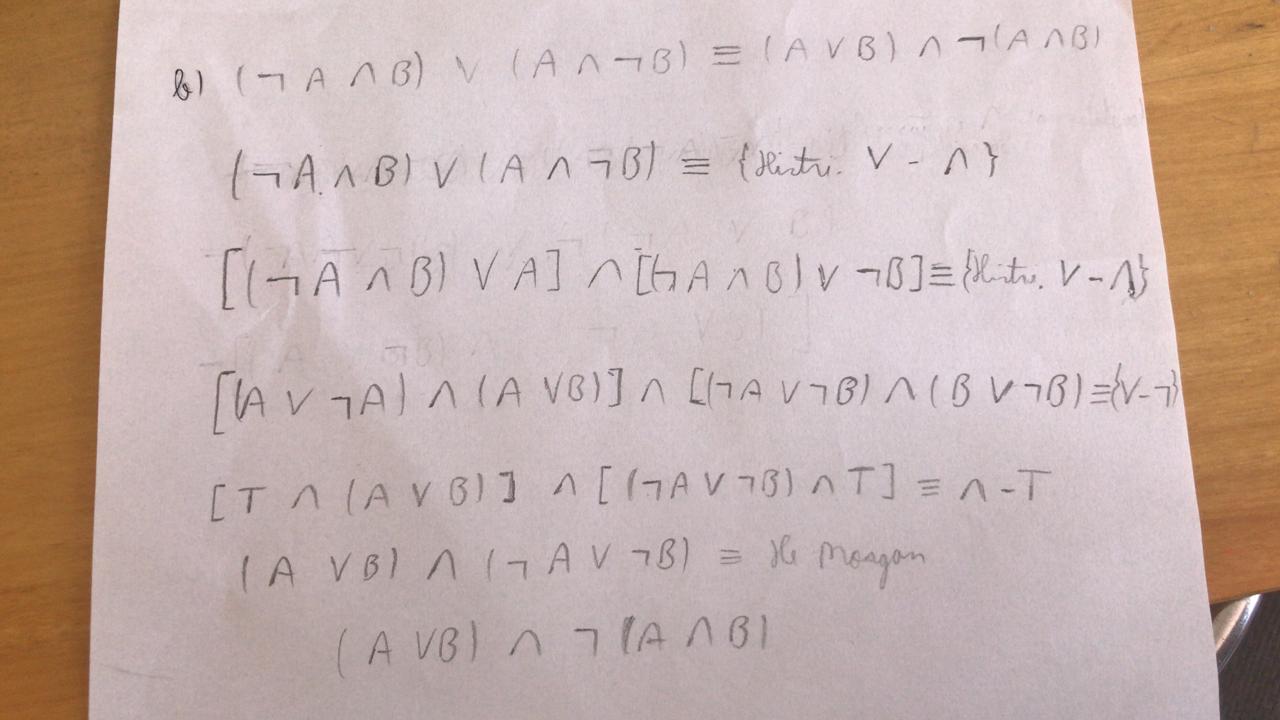 b) (¬ A ∧ B) ∨ (A ∧ ¬B) ≡ (A ∨ B) ∧ ¬(A ∧ B)
(¬ A ∧ B) ∨ (A ∧ ¬B) ≡ {Distri. ∨ - ∧}
[(¬ A ∧ B) ∨ A] ∧ [(¬ A ∧ B) ∨ ¬B] ≡ {Distri. ∨ - ∧}
[(A ∨ ¬A) ∧ (A ∨ B)] ∧ [(¬A ∨ ¬B) ∧ (B ∨ ¬B) ≡ {∨-¬}
[T ∧ (A ∨ B)] ∧ [(¬A ∨ ¬B) ∧ T] ≡ ∧ - T
(A ∨ B) ∧ (¬ A ∨ ¬B) ≡ De Morgan
(A ∨ B) ∧ ¬ (A ∧ B)